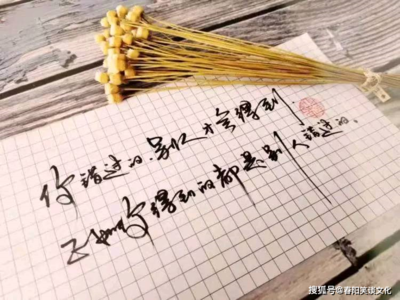 你错过的.别人才会得到
正如你得到的都是别人错过的。
搜狐号@春阳笑谈文化